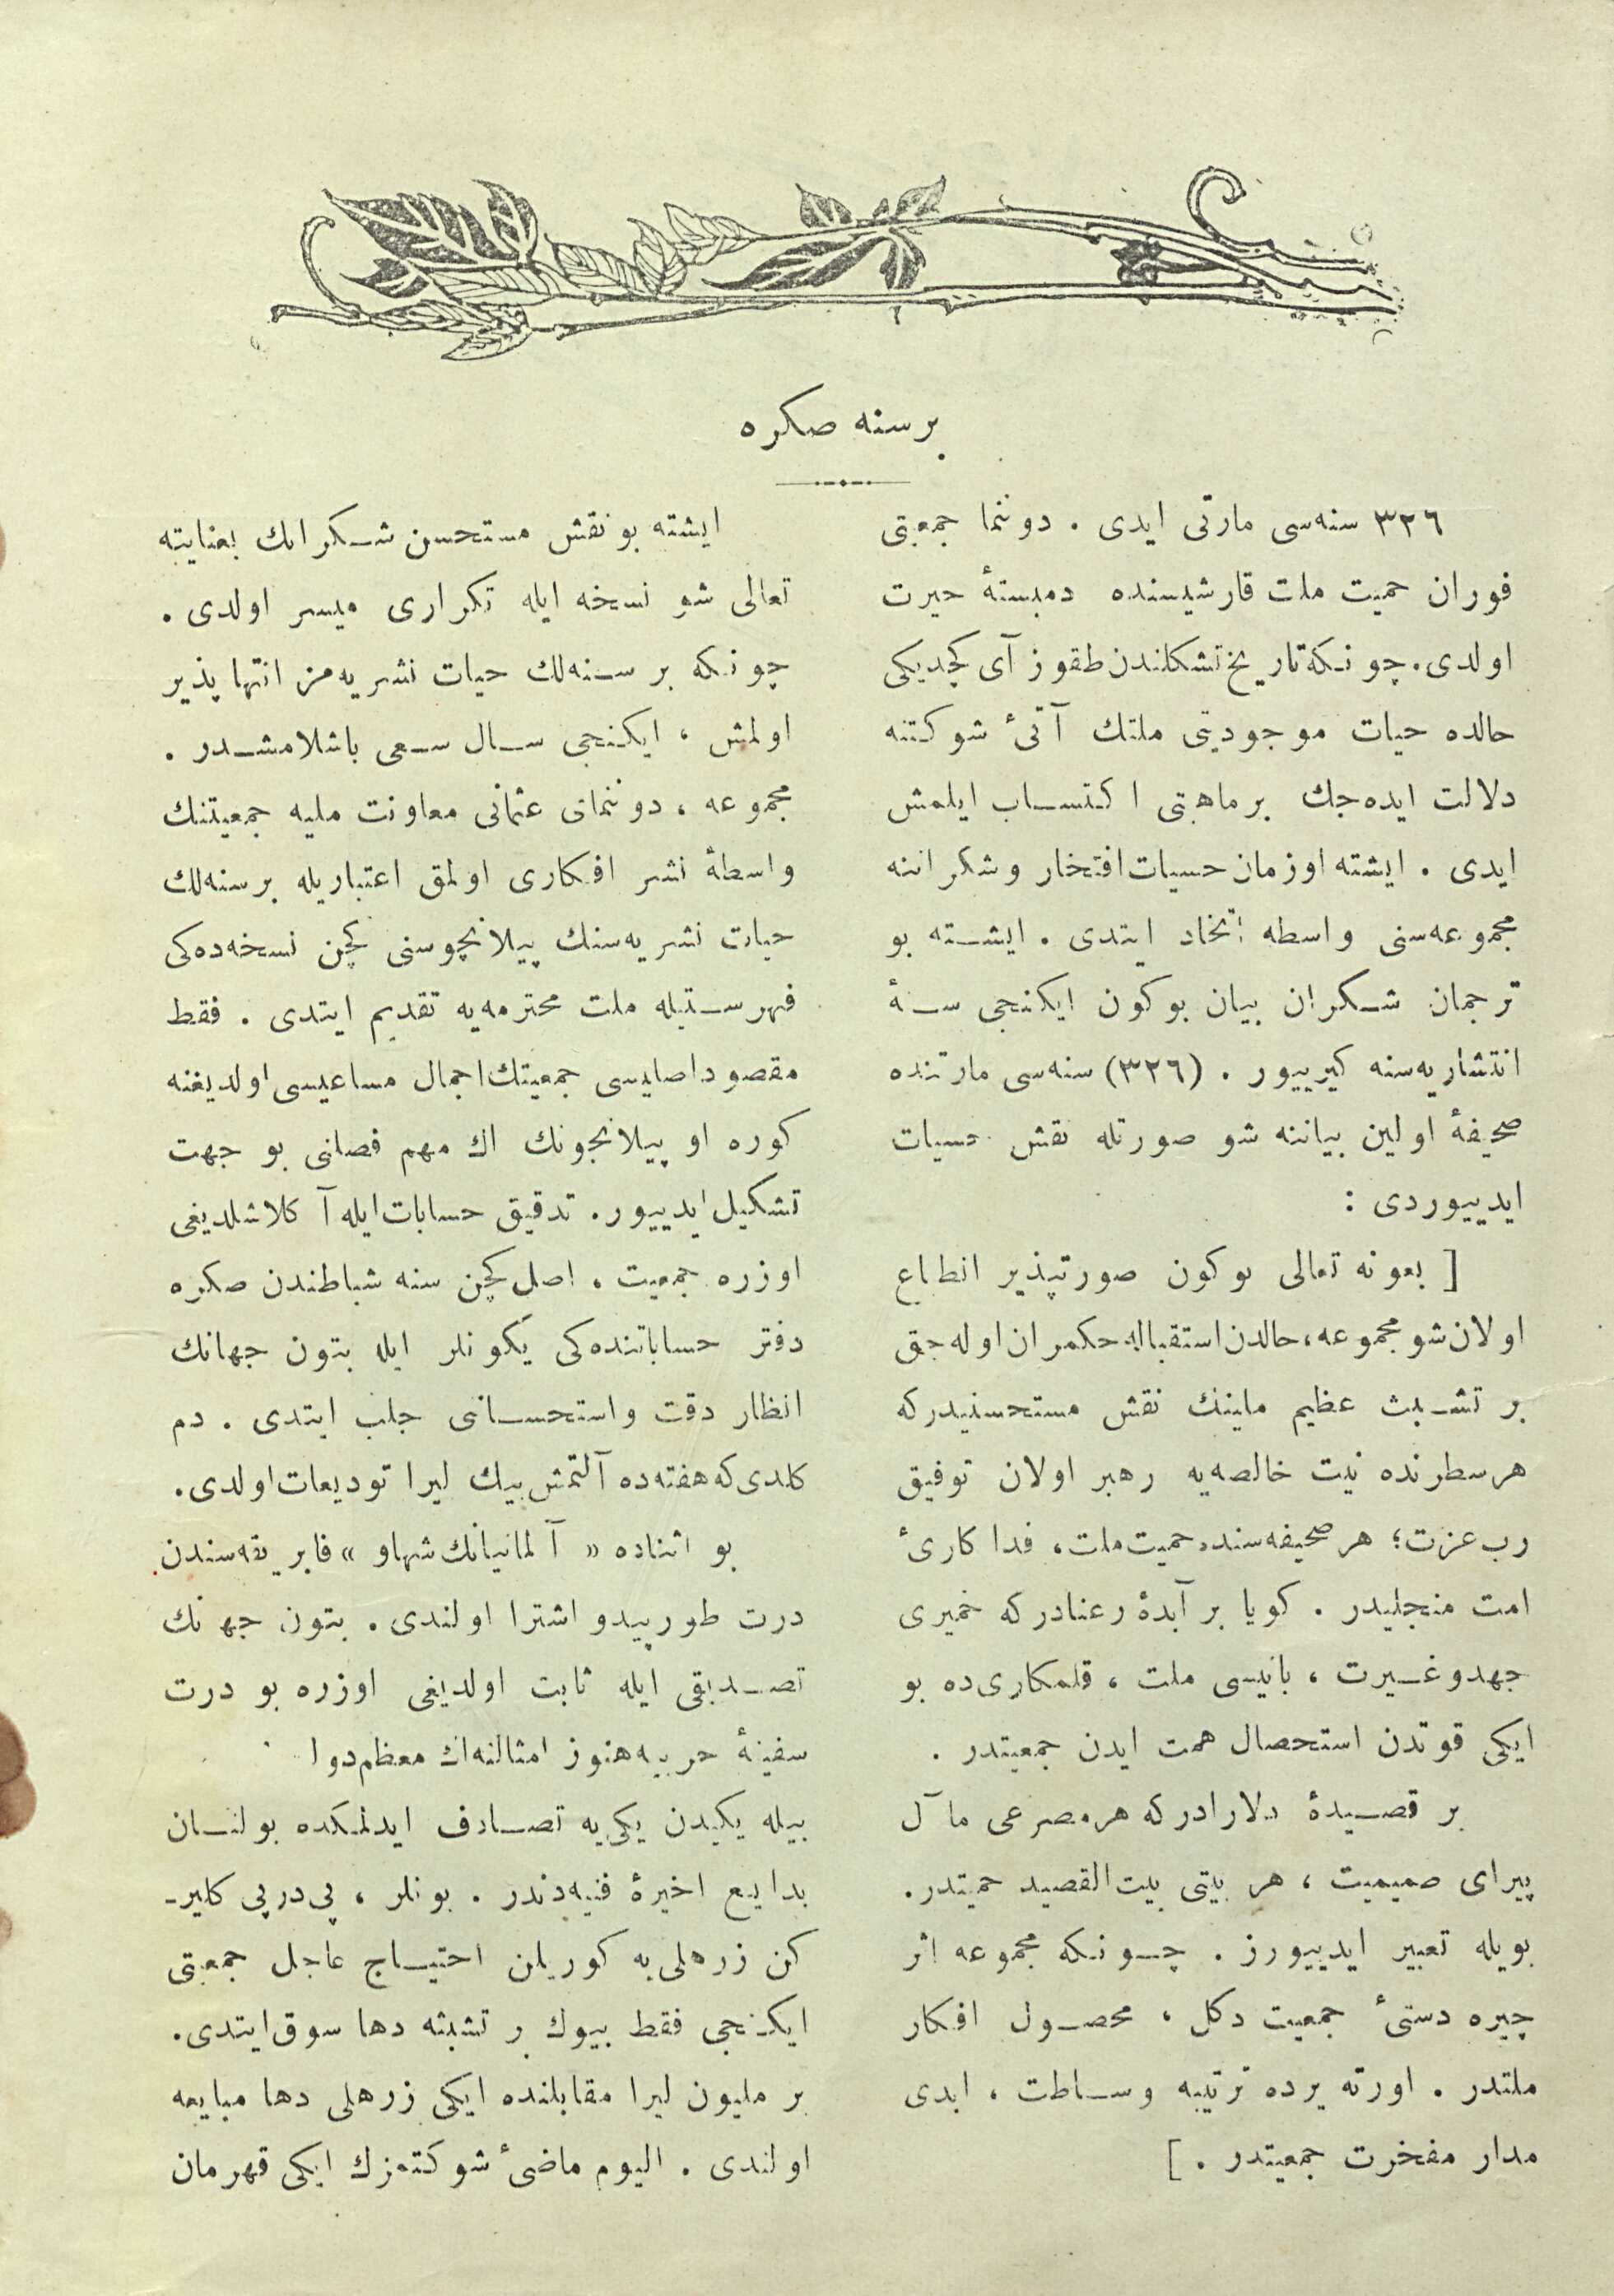 برسنه صكره
٣٢٦ سنه‌سی مارتی ایدی . دوننما جمعیتی
فوران حمیت ملت قارشیسنده دمبستهٔ حیرت
اولدی. چونكه تاریخ تشكلندن طقوز آی كچدیكی
حالده حیات موجودیتی ملتك آتیٔ شوكتنه
دلالت ایده‌جك برماهیتی اكتساب ایلمش
ایدی . ایشته اوزمان حسیات افتخار وشكراننه
مجموعه‌سنی واسطه اتخاد ایتدی . ایشته بو
ترجمان شكران بیان بوكون ایكنجی سنهٔ
انتشاریه‌سنه كیرییور . (٣٢٦) سنه‌سی مارتنده
صحیفهٔ اولین بیاننه شو صورتله نقش حسیات
ایدییوردی :
[ بعونه تعالی بوكون صورتپذیر انطباع
اولان شو مجموعه، حالدن استقباله حكمران اوله‌جق
بر تشبث عظیم ملینك نقش مستحسنیدركه
هرسطرنده نیت خالصه‌یه رهبر اولان توفیق
رب عزت؛ هر صحیفه‌سنده حمیت ملت، فداكاریٔ
امت منجلیدر . كویا بر آبدهٔ رعنادركه خمیری
جهدوغیرت ، بانیسی ملت ، قلمكاری‌ده بو
ایكی قوتدن استحصال همت ایدن جمعیتدر .
بر قصیدهٔ دلارادركه هرمصرعی مآل
پیرای صمیمیت ، هر بیتی بیت‌القصید حمیتدر.
بویله تعبیر ایدییورز . چونكه مجموعه اثر
چیره دستیٔ جمعیت دكل ، محصول افكار
ملتدر . اورته یرده ترتیبه وساطت ، ابدی
مدار مفخرت جمعیتدر . ]
ایشته بونقش مستحسن شكرانك بعنایته
تعالی شو نسخه ایله تكراری میسر اولدی .
چونكه بر سنه‌لك حیات نشریه‌مز انتها پذیر
اولمش ، ایكنجی سال سعی باشلامشدر .
مجموعه ، دوننمای عثمانی معاونت ملیه جمعیتنك
واسطهٔ نشر افكاری اولمق اعتباریله برسنه‌لك
حیات نشریه‌سنك پیلانچوسنی كچن نسخه‌ده‌كی
فهرستیله ملت محترمه‌یه تقدیم ایتدی . فقط
مقصود اصلیسی جمعیتك اجمال مساعیسی اولدیغنه
كوره او پیلانچونك اك مهم فصلنی بو جهت
تشكیل ایدییور. تدقیق حسابات ایله آكلاشلدیغی
اوزره جمعیت ، اصل كچن سنه شباطندن صكره
دفتر حساباتنده‌كی یكونلر ایله بتون جهانك
انظار دقت واستحساننی جلب ایتدی . دم
كلدی‌كه هفته‌ده آلتمش بیك لیرا تودیعات اولدی.
بو اثناده « آلمانیانك شهاو » فابریقه‌سندن
درت طورپیدو اشترا اولندی . بتون جهانك
تصدیقی ایله ثابت اولدیغی اوزره بو درت
سفینهٔ حربیه هنوز امثالنه اك معظم دوا
بیله یكیدن یكی‌یه تصادف ایدلمكده بولنان
بدایع اخیرهٔ فنیه‌دندر . بونلر ، پی‌درپی كلیر-
كن زرهلی‌یه كوریلن احتیاج عاجل جمعیتی
ایكنجی فقط بیوك بر تشبثه دها سوق ایتدی.
بر ملیون لیرا مقابلنده ایكی زرهلی دها مبایعه
اولندی . الیوم ماضیٔ شوكتمزك ایكی قهرمان